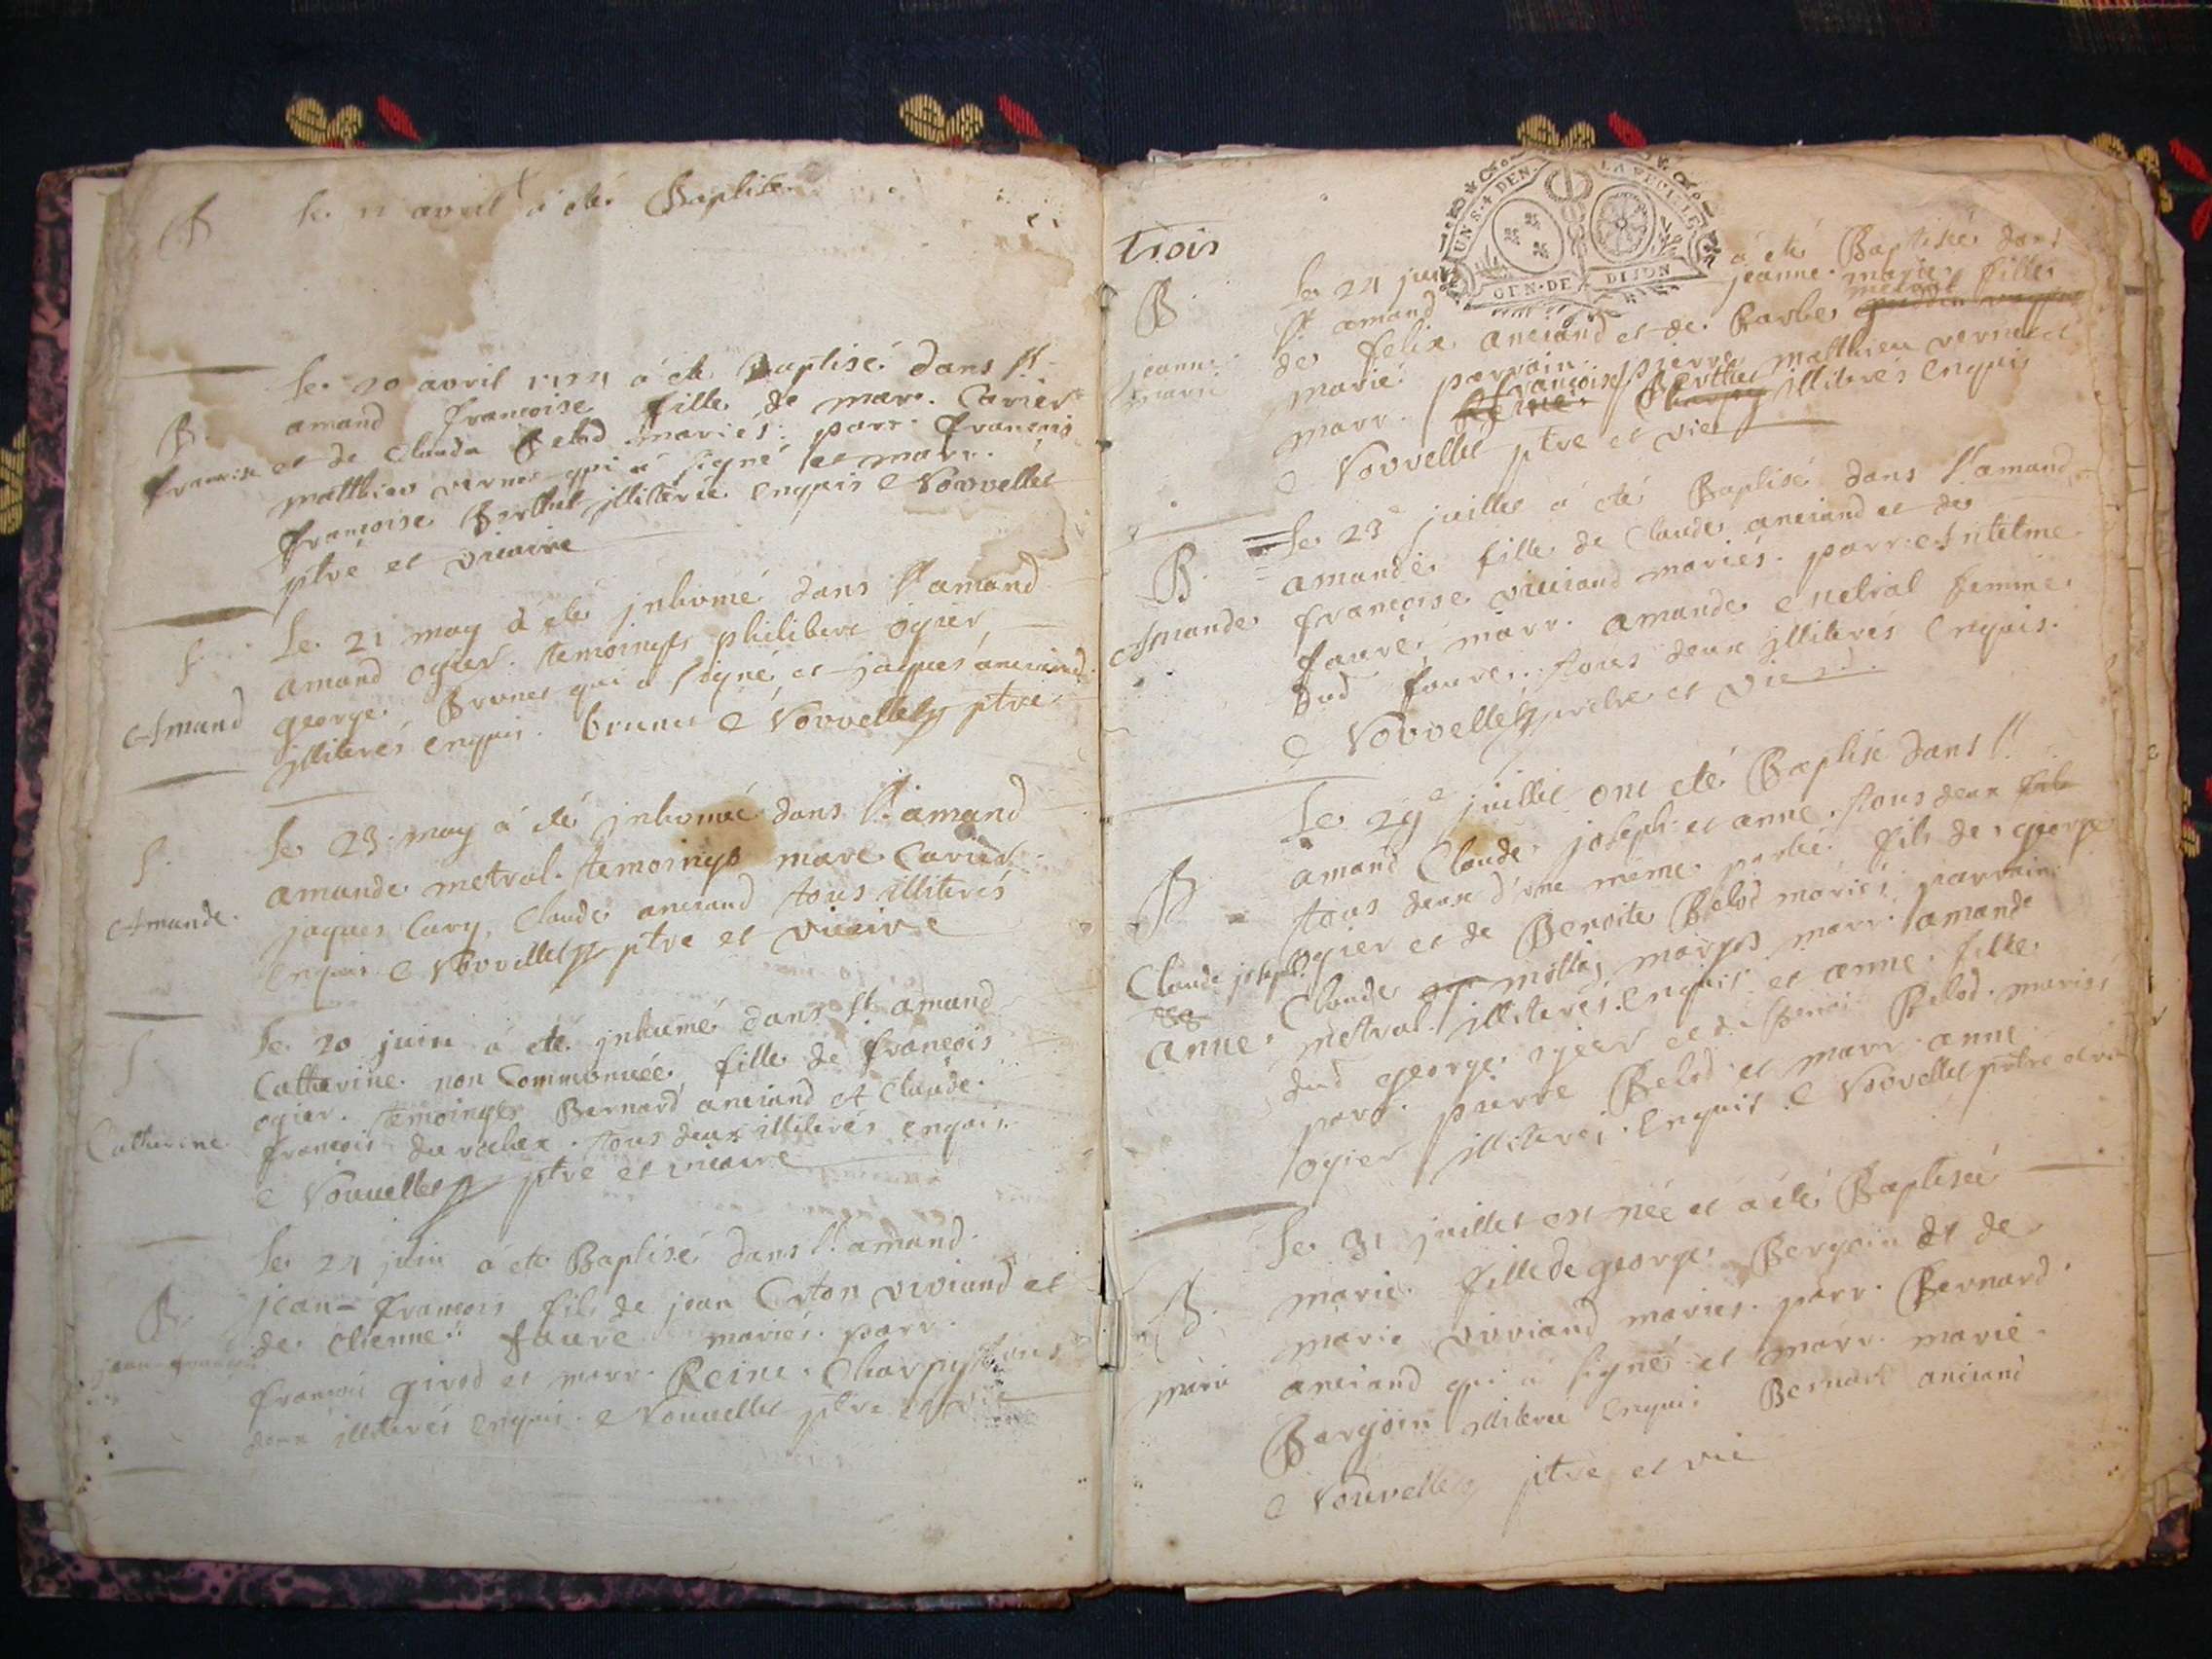 B
le 11 avril a eté Baptisé
Le 20 avril a eté Baptisé dans St
B.
amand francoise fille de marc Carier
francoise
et de Clauda Belod mariés parr. francois
matthieu vernet qui a signé et marr.
francoise Berthet illiterée enquis E Vouvelles
ptre et vicaire
Le 21 may a eté jnhumé dans St amand
S.
amand ogier. temoingts philibert ogier
Amand
george Brunet qui a signé et jaques anciand
illiterés enquis. brunet E Vouvelles ptre
Le 23 may a eté jnhumée dans St amand
S.
amande metral. temoingts marc Carier
Amande.
jaques Cary, Claude anciand tous illiterés
enquis E Vouvelles ptre et vicaire
Le 20 juin a eté jnhumé dans St amand
S.
Catherine non Communiée, fille de francois
ogier. temoingts Bernard anciand et Claude
Catherine
francois tous deux illiterés enquis
E Vouvelles ptre et vicaire
Le 24 juin a eté Baptisé dans St amand
B.
jean-francois fils de jean viviand et
jean-francois
de etienne faure mariés. parr.
francois girod et marr. Reine Charpy tous
deux illiterés enquis. E Vouvelles ptre et vic
trois
UN S. 4 DEN. LA FEUILLE
GEN. DE DIJON
Le 24 a eté Baptisée dans
B.
St amand jeanne marie fille
jeanne
de felix anciand et de Barbe metral
marie
marié parrain pierre matthieu vernet et
marr. francoise Berthet illiterés enquis
E Vouvelles ptre et vic
Le 23e juillet a eté Baptisé dans St amand
B.
amande fille de Claude anciand et de
Amande
francoise viviand mariés. parr. Antelme
faure, marr. amande metral femme
dud faure. tous deux illiterés enquis.
E Vouvelles prebre et vic
Le 29e juillet ont eté Baptisé dans St
amand Claude joseph et anne. tous deux
B
tous deux d'une même portée, fils de george
Claude joseph
ogier et de Benoite Belod mariés parrain
Claude marr. amande
anne.
metral. illiterés. enquis et anne. fille
dud george ogier et de Belod. mariés
parr. pierre Belod et marr. anne
ogier illiterés. enquis. E Vouvelles prebre et vic
Le 31 juillet est née et a eté Baptisée
B.
marie. fille de george Bergoin et de
marie viviand mariés. parr. Bernard
marie
anciand qui a signé et marr. marie
Bergoin illiteree enquis Bernard anciand
E Vouvelles ptre et vic